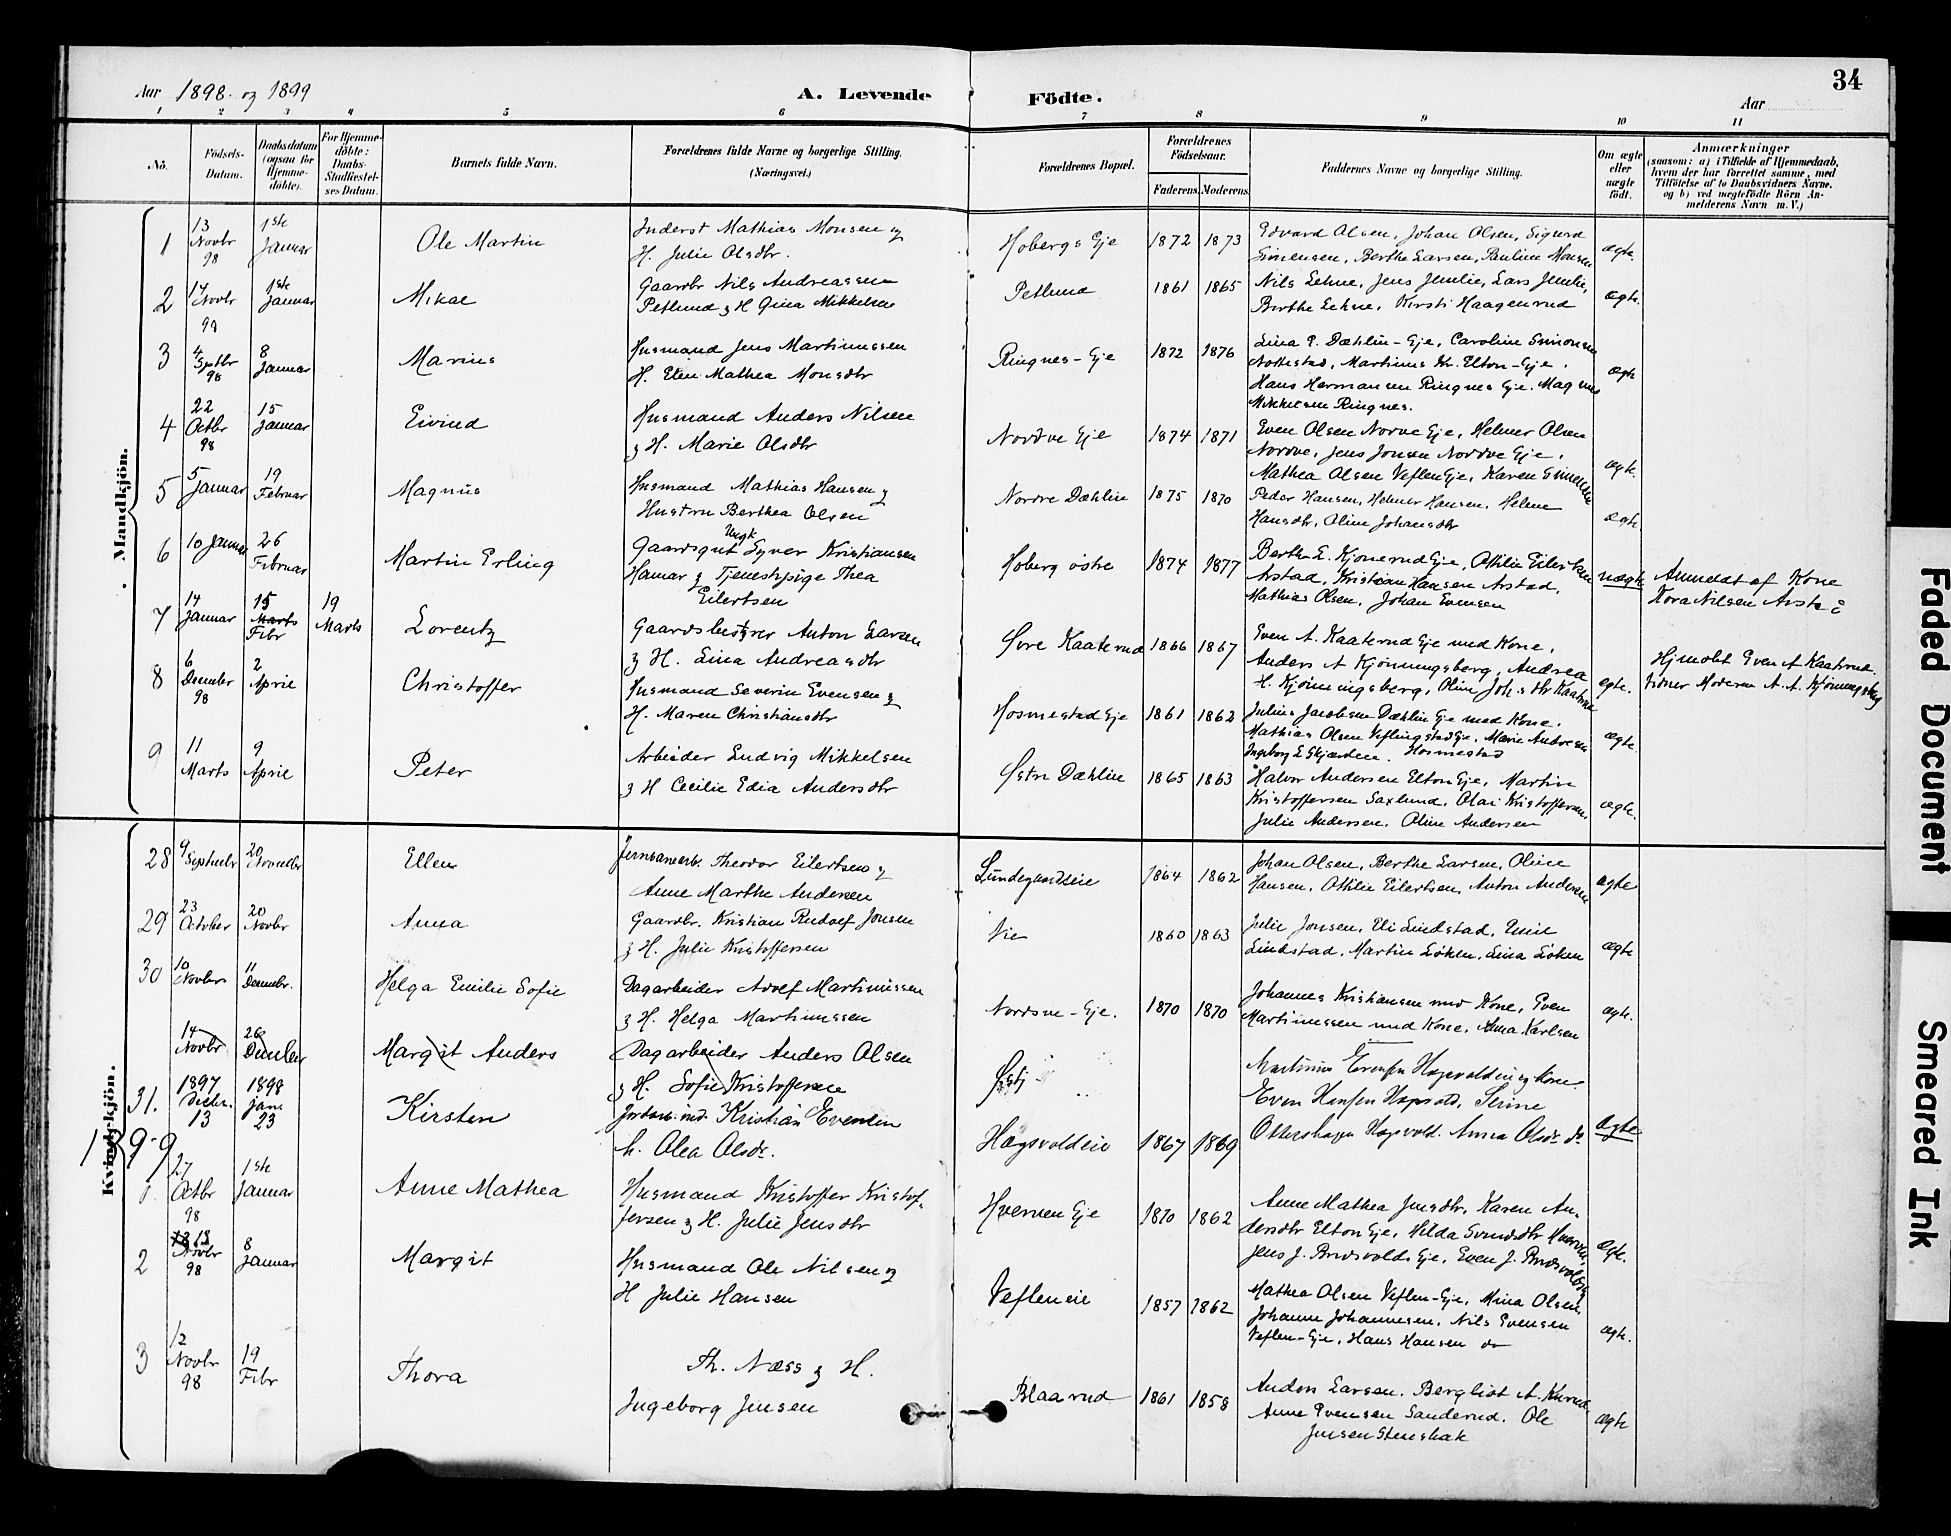 34
Aar 1898. og 1899
A. Levende Födte.
Aar
1 2 3 4 5 6 7 8 9 10 11
Nö.
Födsels-Datum.
Daabsdatum (ogsaa for Hjemme-döbte).
For Hjemme-döbte: Daabs-Stadfæstel-ses Datum.
Barnets fulde Navn.
Forældrenes fulde Navne og borgerlige Stilling. (Næringsvei.)
Forældrenes Bopæl.
Forældrenes Födselsaar.
Faderens. Moderens.
Faddernes Navne og borgerlige Stilling.
Om ægte eller uægte födt.
Anmærkninger
(saasom: a) i Tilfælde af Hjemmedaab, hvem der har forrettet samme, med Tilföielse af to Daabsvidners Navne, og b) ved uægtefödte Börn An-melderens Navn m. V.)
Mandkjön.
1 13 Novbr 98 1ste Januar Ole Martin
Inderst Mathias Monsen og
H. Julie Olsdtr.
Hobergs Eje 1872 1873
Edvard Olsen, Johan Olsen, Sigurd
Simensen, Berthe Larsen, Pauline Monsen
ægte.
2 17 Novbr 98 1ste Januar Mikal
Gaardbr Nils Andreassen
Petlund & H Gina Mikkelsen
Petlund 1861 1865
Nils Lehne, Jens Jemlie, Lars Jemlie,
Berthe Lehne, Kirsti Haagenrud
ægte.
3 4 Septbr 98 8 Januar Marius
Husmand Jens Martinussen
H. Elen Mathea Monsdtr
Ringnes-Eje 1872 1876
Lina P. Dæhlin-Eje, Caroline Simonsen
Nottestad, Martinus Kr. Elton-Eje.
Hans Hermansen Ringnes Eje. Magnus
Mikkelsen Ringnes.
ægte
4 22 Octbr 98 15 Januar Eivind
Husmand Anders Nilsen
& H. Marie Olsdtr
Nordve Eje 1874 1871
Even Olsen Norve Eje, Helmer Olsen
Nordve, Jens Jonsen Nordve Eje.
Mathea Olsen Veflen Eje, Karen Simensen
ægte.
5 5 Januar 19 Februar Magnus
Husmand Mathias Hansen &
Hustru Berthea Olsen
Nordre Dæhlin 1875 1870
Peder Hansen, Helmer Hansen, Helene
Hansdtr, Oline Johansdtr
ægte.
6 10 Januar 26 Februar Martin Erling
Ungk
Gaardsgut Syver Kristiansen
Hamar & Tjenestepige Thea
Eilertsen
Hoberg østre 1874 1877
Berthe L. Kjonerud Eje, Othilie Eilertsen
Arstad, Kristian Hansen Arstad,
Mathias Olsen, Johan Evensen
uægte
Anmeldt af Kone
Kora Nilsen
7 14 Januar 15 Marts Febr 19 Marts Lorentz
Gaardsbestyrer Anton Larsen
& H. Lina Andreasdtr
Øvre Kaaterud 1866 1867
Even A. Kaaterud Eje med Kone,
Anders A Kjønningsberg, Andrea
H. Kjønningsberg, Oline Joh.sdtr Kaaterud
ægte.
Hjmdbt Even A Kaaterud.
Vidner Moderen A. A. Kjønningsberg
8 6 Desember 98 2 April Christoffer
Husmand Severin Evensen &
H. Maren Christiansdtr
Hosmestad Eje 1861 1862
Julius Jacobsen Dæhlin Eje med Kone.
Mathias Olsen Veflingstad Eje, Marie Andresen
Ingeborg L Skjærden. Hosmestad
ægte.
9 11 Marts 9 April Peter
Arbeider Ludvig Mikkelsen
& H Cecilie Edia Andersdtr
Østre Dæhlin 1865 1863
Halvor Andersen Elton Eje, Martin
Kristoffersen Saxlund, Olai Kristoffersen
Julie Andersen. Oline Andersen
ægte.
Kvindekjön.
28 9 Septmbr 20 Novembr Ellen
Jernbanearb. Theodor Eilertsen &
Anne Marthe Andersen
Lundegardseie 1864 1862
Johan Olsen, Berthe Larsen, Oline
Hansen, Othilie Eilertsen, Anton Andersen
ægte
29 23 October 20 Novbr Anna
Gaardbr. Kristian Rudolf Jonsen
& H. Julie Kristoffersen
Vie 1860 1863
Julie Jonsen, Eli Lindstad, Emil
Lindstad, Martin Løken, Lina Løken
ægte
30 10 Novbr 11 Desembr. Helga Emilie Sofie
Dagarbeider Adolf Martinussen
& H. Helga Martinussen
Nordsve-Eje. 1870 1870
Johannes Kristiansen med Kone, Even
Martinussen med Kone, Anna Karlsen
ægte.
14 Novbr 26 Desember Margit Anders
Dagarbeider Anders Olsen
& H. Sofie Kristoffersen
31. 1897 Decbr. 13 1898 Jan. 23 Kirsten
Kristian Evensen
h. Olea Olsdr.
Hagsvoldeie 1867 1869
Martinus Evensen Hagsvoldeie og Kone
Even Hansen Hagsvold, Serine
Ottershagen Hagsvold. Anna Olsdr. do
Ægte
1899
1 27 Octbr 98 1ste Januar Anne Mathea
Husmand Kristoffer Kristof-
fersen & H. Julie Jensdtr
Hverven Eje 1870 1862
Anne Mathea Jensdtr, Karen An-
dersdtr Elton Eje, Hilda Svendsdtr Hverven,
Jens J. Brudsvolds Eje, Even J. Brudsvolds
Ægte.
2 13 Novbr 98 8 Januar Margit
Husmand Ole Nilsen og
H Julie Hansen
Vefleneie 1857 1862
Mathea Olsen Veflen-Eje, Mina Olsen,
Johanne Johannesen, Nils Evensen
Veflen-Eje, Hans Hansen do
ægte.
3 12 Novbr 98 19 Febr Thora
Th. Næss & H.
Ingeborg Jensen
Blaarud 1861 1858
Anders Larsen. Bergliot A. Kurud
Anne Evensen Sanderud. Ole
Jensen Stenshak
ægte
Faded Document
Smeared Ink